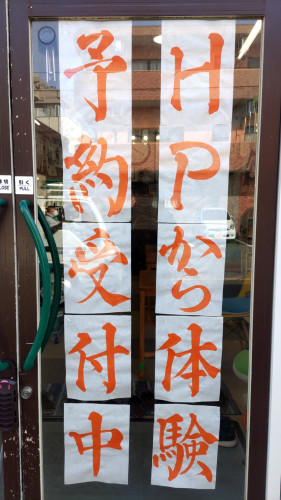 HPから体験
予約受付中
引く
PULL
CLOSE